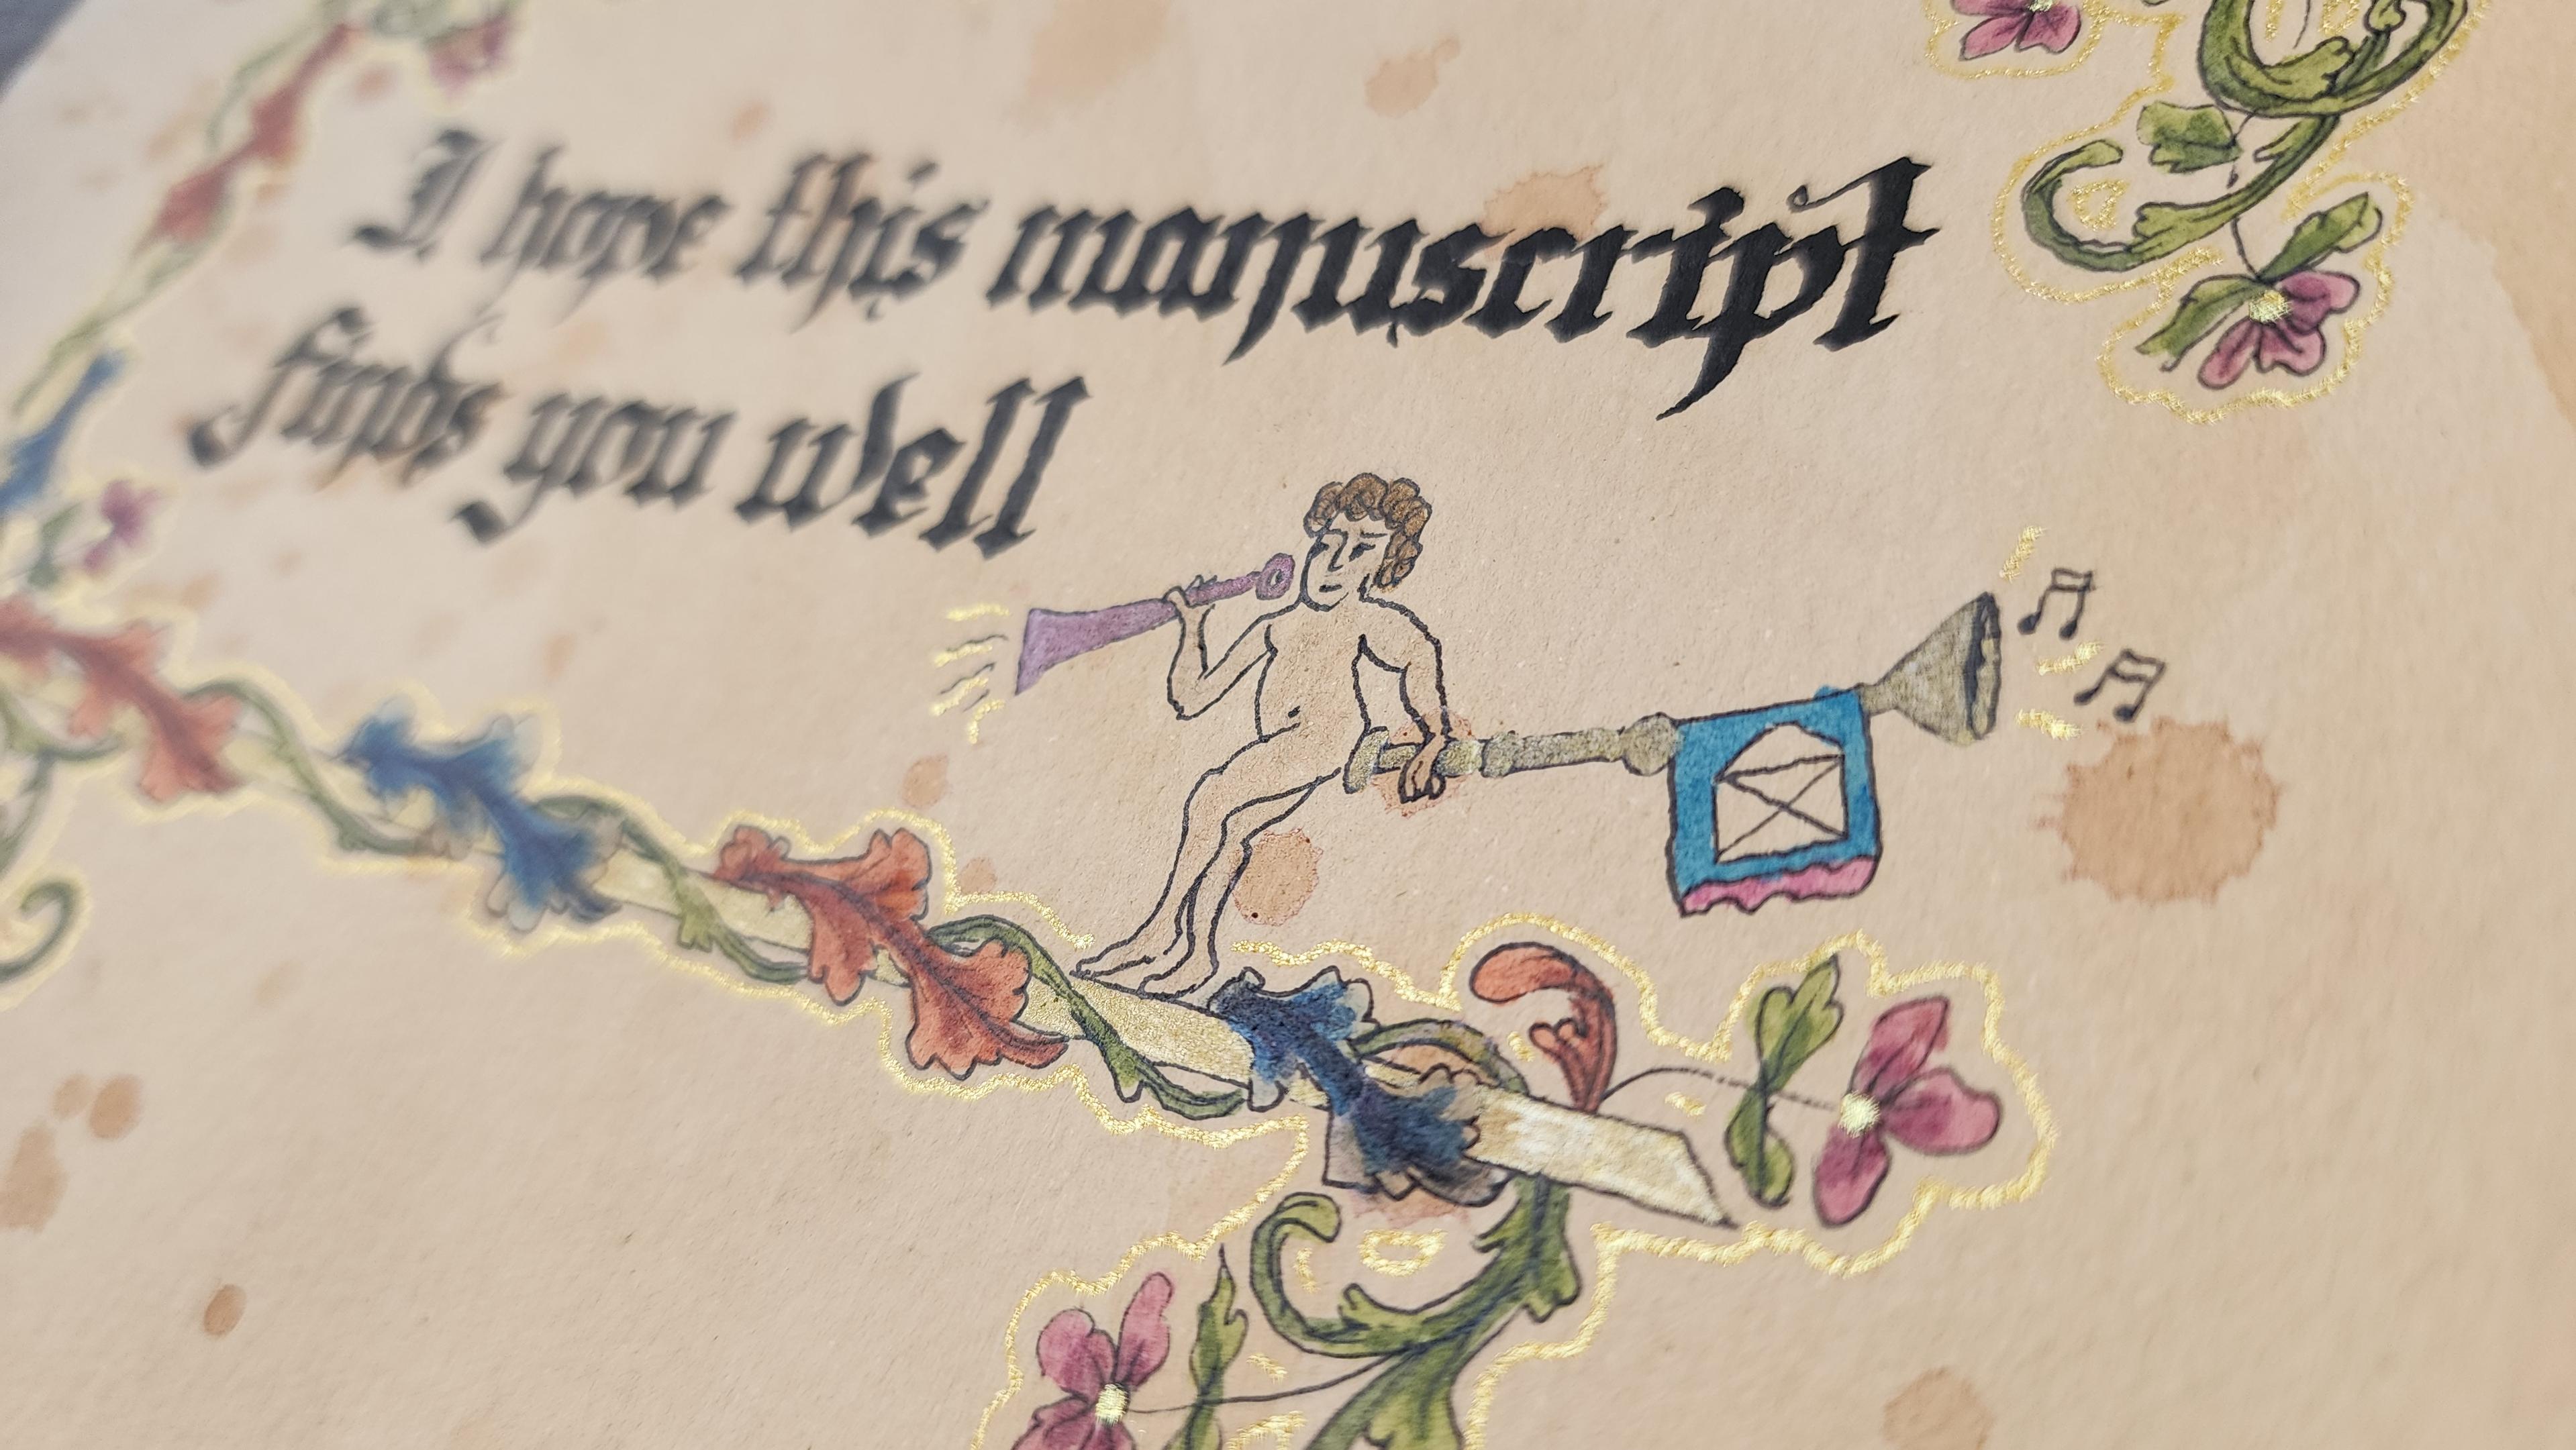 I hope this manuscript
finds you well